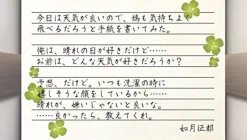 今日は天気が良いので、鳩も気持ちよく
飛べるだろうと手紙を書いてみた。
俺は、晴れの日が好きだけど……
お前は、どんな天気が好きだろうか?
予想、だけど。いつも洗濯の時に
嬉しそうな顔をしているから……
晴れが、嫌いじゃないと良いな。
……良かったら、教えてくれ。
如月征都